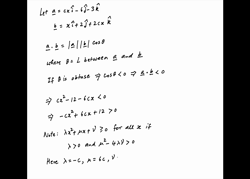 Let a = cxî - 6ĵ - 3k̂
b = xî + 2ĵ + 2cx k̂
a . b = |a| |b| cosθ
where θ = L between a and b
If θ is obtuse ⇒ cosθ < 0 ⇒ a . b < 0
⇒ cx² - 12 - 6cx < 0
⇒ -cx² + 6cx + 12 > 0
Note: λx² + μx + ν ≥ 0 for all x if
λ > 0 and μ² - 4λν > 0
Here λ = -c, μ = 6c, ν